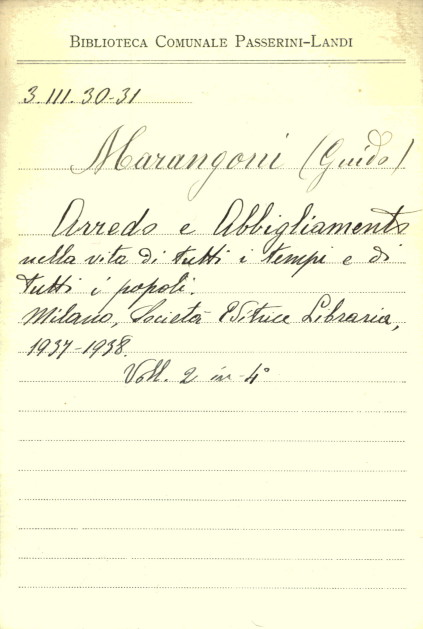 BIBLIOTECA COMUNALE PASSERINI-LANDI
3.III.30-31
Marangoni (Guido)
Arredo e Abbigliamento
nella vita di tutti i tempi e di
tutti i popoli.
Milano, Società Editrice Libraria,
1937-1938.
Voll. 2 in-4°